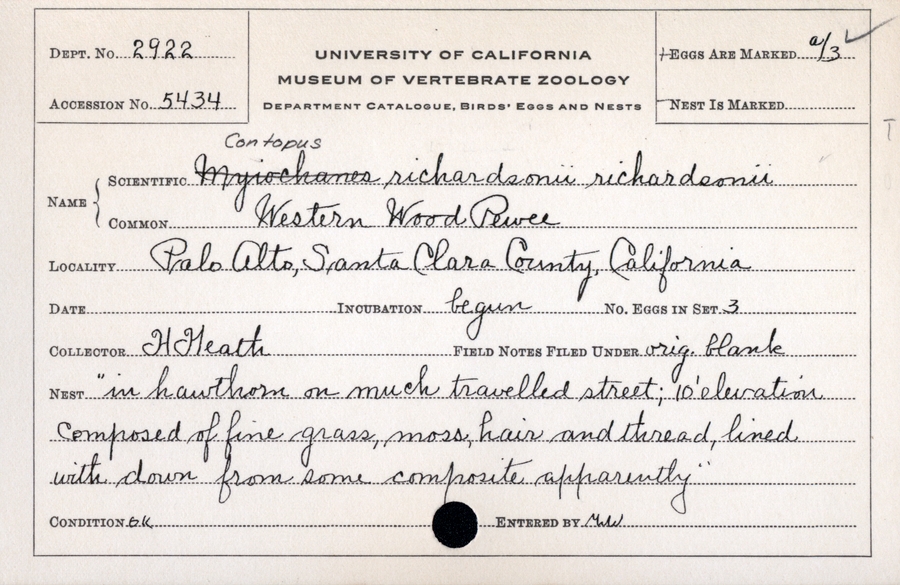 DEPT. No. 2922
ACCESSION No. 5434
UNIVERSITY OF CALIFORNIA
MUSEUM OF VERTEBRATE ZOOLOGY
DEPARTMENT CATALOGUE, BIRDS' EGGS AND NESTS
EGGS ARE MARKED a/3
NEST IS MARKED
Contopus
NAME
SCIENTIFIC Myiochanes richardsonii richardsonii
COMMON Western Wood Pewee
LOCALITY Palo Alto, Santa Clara County, California
DATE INCUBATION begun No. EGGS IN SET 3
COLLECTOR H Heath FIELD NOTES FILED UNDER orig. blank
NEST "in hawthorn on much travelled street; 10' elevation
composed of fine grass, moss, hair and thread, lined
with down from some composite apparently"
CONDITION OK ENTERED BY